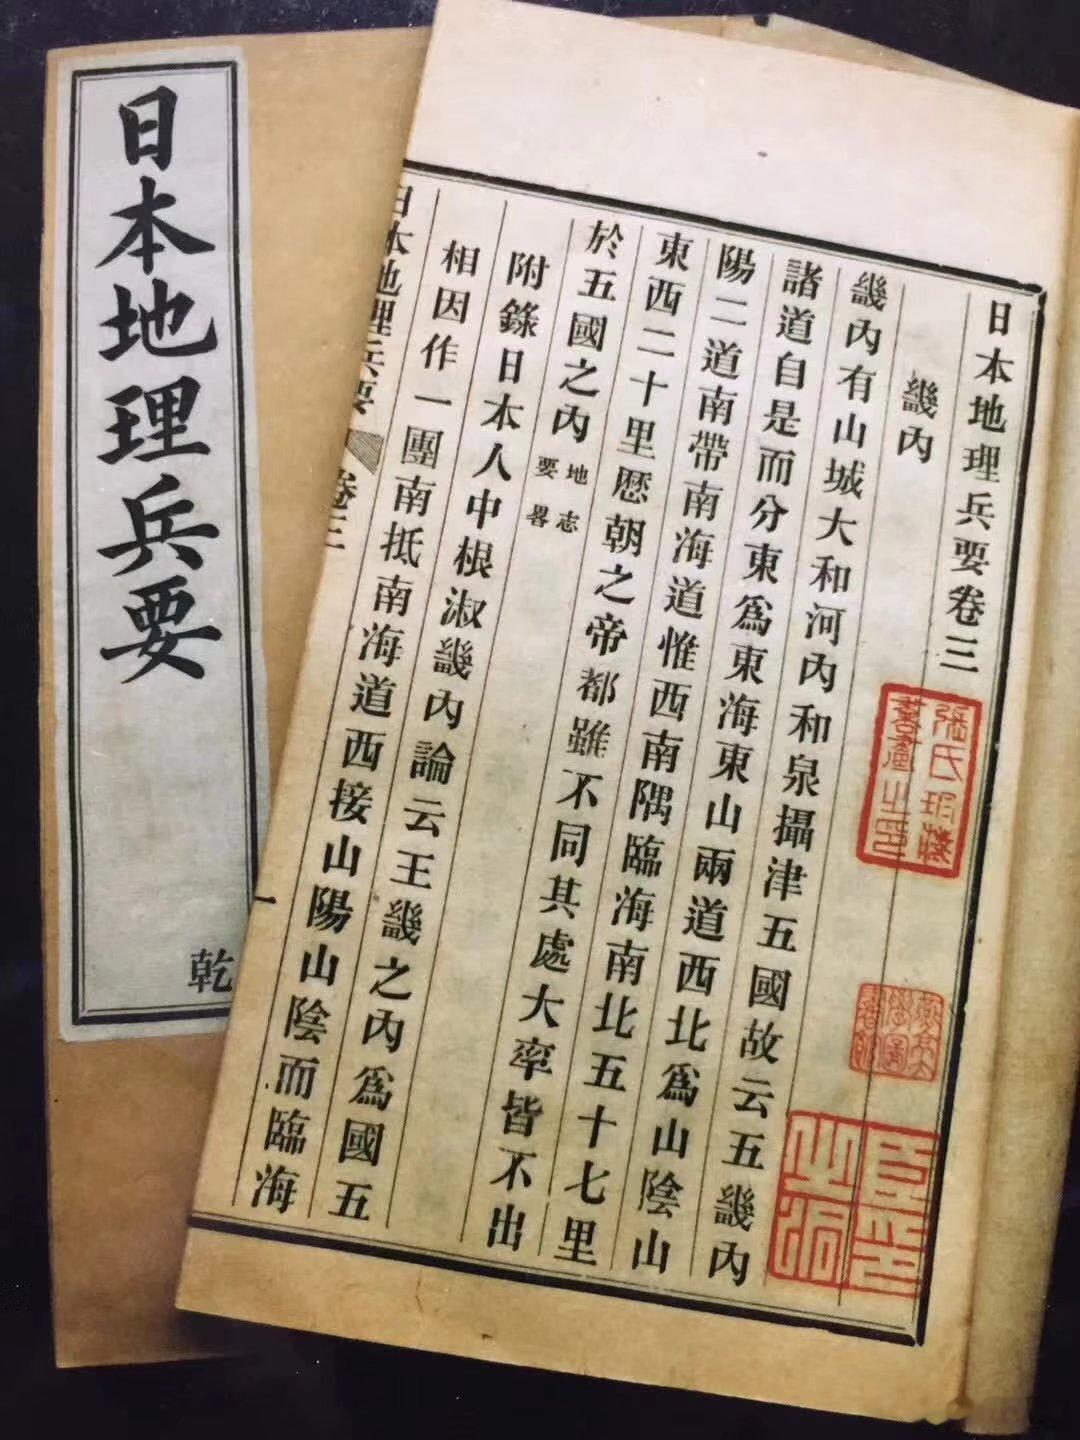 日本地理兵要
乾
日本地理兵要卷三
畿內
畿內有山城大和河內和泉攝津五國故云五畿內
諸道自是而分東爲東海東山兩道西北爲山陰山
陽二道南帶南海道惟西南隅臨海南北五十七里
東西二十里厯朝之帝都雖不同其處大率皆不出
於五國之內
地志
要畧
附錄日本人中根淑畿內論云王畿之內爲國五
相因作一團南抵南海道西接山陽山陰而臨海
日本地理兵要 卷三
一